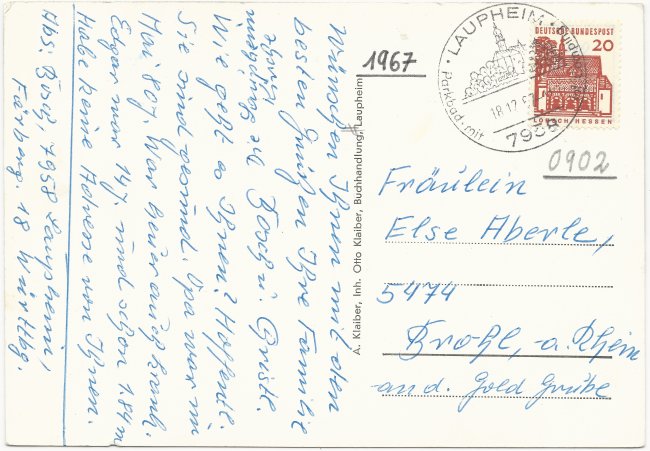 Wünschen Ihnen mit den
besten Grüßen Ihre Familie
Wie geht es Ihnen? Hoffentl.
Sie sind gesund. Opa war im
Mai 80j. War heuer auch krank.
Edgar nur 14j und schon 1.84 m
Habe keine Adresse von Ihnen.
Abs: Bosch, 7958 Laupheim,
Färberg. 18 Württbg.
1967
A. Klaiber, Inh. Otto Klaiber, Buchhandlung, Laupheim
LAUPHEIM
Parkbad mit
18.12.
7958
DEUTSCHE BUNDESPOST
20
LORSCH/HESSEN
0902
Fräulein
Else Aberle,
5474
Brohl, a. Rhein
and. Gold Grube